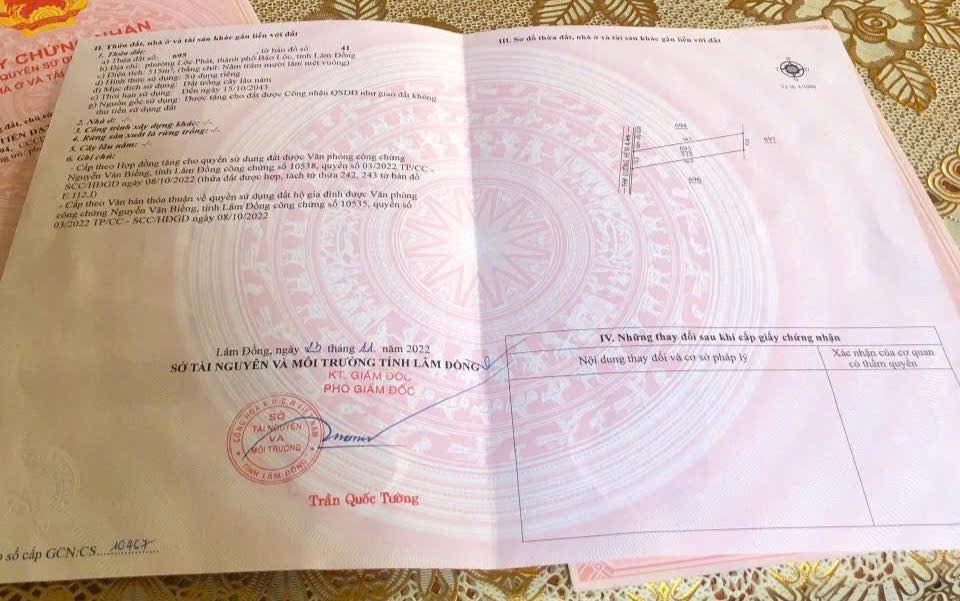 Y CHỨNG NHẬN
II. Thửa đất, nhà ở và tài sản khác gắn liền với đất
1. Thửa đất:
a) Thửa đất số: 695 , tờ bản đồ số: 41
b) Địa chỉ: phường Lộc Phát, thành phố Bảo Lộc, tỉnh Lâm Đồng
c) Diện tích: 515m², (bằng chữ: Năm trăm mười lăm mét vuông)
d) Hình thức sử dụng: Sử dụng riêng
đ) Mục đích sử dụng: Đất trồng cây lâu năm
e) Thời hạn sử dụng: Đến ngày 15/10/2043
g) Nguồn gốc sử dụng: Được tặng cho đất được Công nhận QSDĐ như giao đất không
thu tiền sử dụng đất
2. Nhà ở: -/-
3. Công trình xây dựng khác: -/-
4. Rừng sản xuất là rừng trồng: -/-
5. Cây lâu năm: -/-
6. Ghi chú:
- Cấp theo Hợp đồng tặng cho quyền sử dụng đất được Văn phòng công chứng
Nguyễn Văn Biểng, tỉnh Lâm Đồng công chứng số 10538, quyển số 03/2022 TP/CC -
SCC/HĐGD ngày 08/10/2022 (thửa đất được hợp, tách từ thửa 242, 243 tờ bản đồ
E.112.I)
- Cấp theo Văn bản thỏa thuận về quyền sử dụng đất hộ gia đình được Văn phòng
công chứng Nguyễn Văn Biểng, tỉnh Lâm Đồng công chứng số 10535, quyển số
03/2022 TP/CC - SCC/HĐGD ngày 08/10/2022
Lâm Đồng, ngày 29 tháng 11 năm 2022
SỞ TÀI NGUYÊN VÀ MÔI TRƯỜNG TỈNH LÂM ĐỒNG
KT. GIÁM ĐỐC
PHÓ GIÁM ĐỐC
CỘNG HÒA X.H.C.N VIỆT NAM
SỞ
TÀI NGUYÊN
VÀ
MÔI TRƯỜNG
TỈNH LÂM ĐỒNG
Trần Quốc Tường
số cấp GCN:CS....10467
III. Sơ đồ thửa đất, nhà ở và tài sản khác gắn liền với đất
694
695
515
696
IV. Những thay đổi sau khi cấp giấy chứng nhận
Nội dung thay đổi và cơ sở pháp lý
Xác nhận của cơ quan
có thẩm quyền